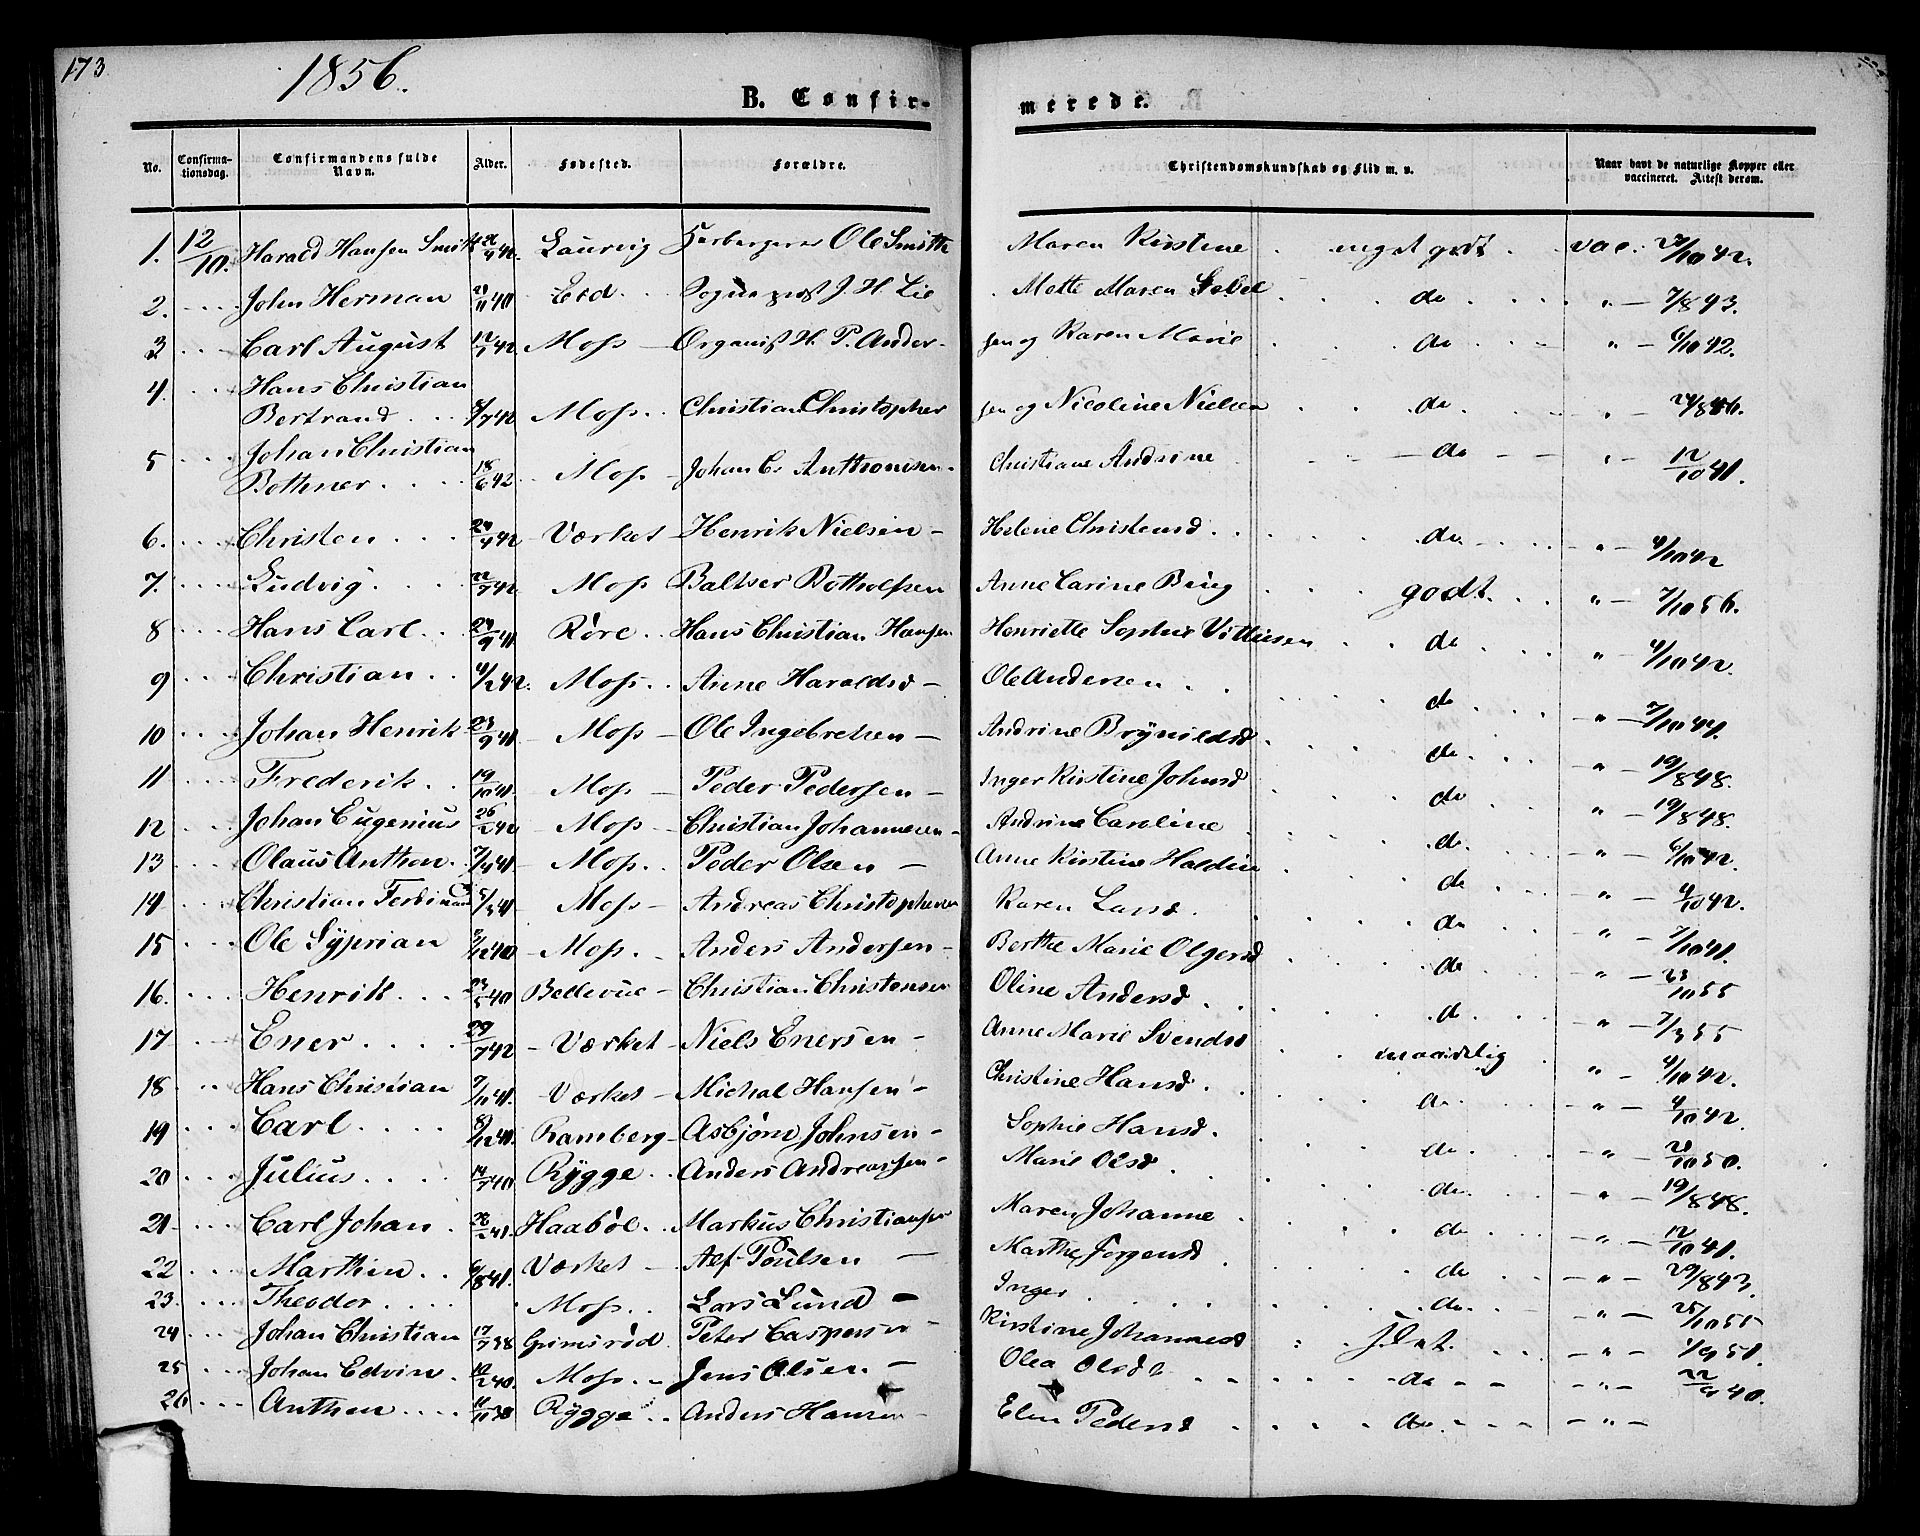 173
1856.
B. Confirmerede.
No. Confirmationsdag. Confirmandens fulde Navn. Alder. Fødested. Forældre. Christendomskundskab og Flid m. v. Naar havt de naturlige Kopper eller vaccineret. Attest derom.
1. 12/10. Harald Hansen Smith Laurvig Ole Smith Maren Kirstine meget godt vac. 42.
2. John Herman 40 Eid Sogneprest J. H. Lie Mette Maren do " 7/8 43.
3 Carl August 42 Moss Organist H. P. Andersen og Karen Marie do " 6/10 42.
4. Hans Christian
Bertrand 42 Moss Christian Christophersen og Nicoline Nielsen do "
5 Johan Christian
Bothner 18/6 42 Moss Johan C. Anthonisen Christiane Andrine do " 12/10 41.
6. Christen 42 Værket Henrik Nielsen Helene Christensd do " 4/10 42
7. Ludvig 22/7 42 Moss Baltser Botholfsen Anne Carine godt " 7/10 56.
8 Hans Carl 24/9 41 Røre Hans Christian Hansen Henriette Sophie do " 4/10 42.
9 Christian 4/2 42. Moss Anne Haraldsd Ole Andersen do " 7/10 41.
10 Johan Henrik 23/9 41 Moss Ole Ingebretsen Andrine Brynildsd do " 19/8 48.
11 Frederik 19/10 41. Moss Peder Pedersen Inger Kirstine Johnsd do " 19/8 48.
12 Johan Eugenius 26/2 42 Moss Christian Johannesen Andrine Caroline do " 6/10 42.
13 Olaus Anthon 41 Moss Peder Olsen Anne Kirstine do " 4/10 42.
14 Christian Ferdinand 5/3 41 Moss Andreas Christophersen Karen do " 7/10 41.
15 Ole Syprian 3/12 40 Moss Anders Andersen Berthe Marie Olgersd do " 23/10 55
16. Henrik 40 Bellevue Christian Christensen Oline Andersd do " 7/3 55
17 Ener 29/7 42 Værket Niels Enersen Anne Marie Svendsd maadelig " 4/10 42.
18 Hans Christian 7/11 41. Værket Michal Hansen Christine Hansd do " 4/10 42.
19 Carl 8/12 41. Ramberg Asbjørn Johnsen Sophie Hansd do " 20/10 50.
20 Julius 14/7 40 Rygge Anders Andreassen Marie Olsd do " 19/8 48.
21 Carl Johan 28/2 41. Haabøl Markus Christiansen Maren Johanne do " 12/10 41.
22 Marthin 6/8 41. Værket Alf Poulsen Marthe Jørgensd do " 29/8 43.
23. Theodor Moss Lars Lund Inger do " 25/10 55
24 Johan Christian 17/7 38 Grimsrød Peter Caspersen Kirstine Johannesd " 4/9 51.
25 Johan Edvin 40. Moss Jens Olsen Olea Olsdt do " 40.
26 Anthon 38 Rygge Anders Hansen Elen Pedersd do "